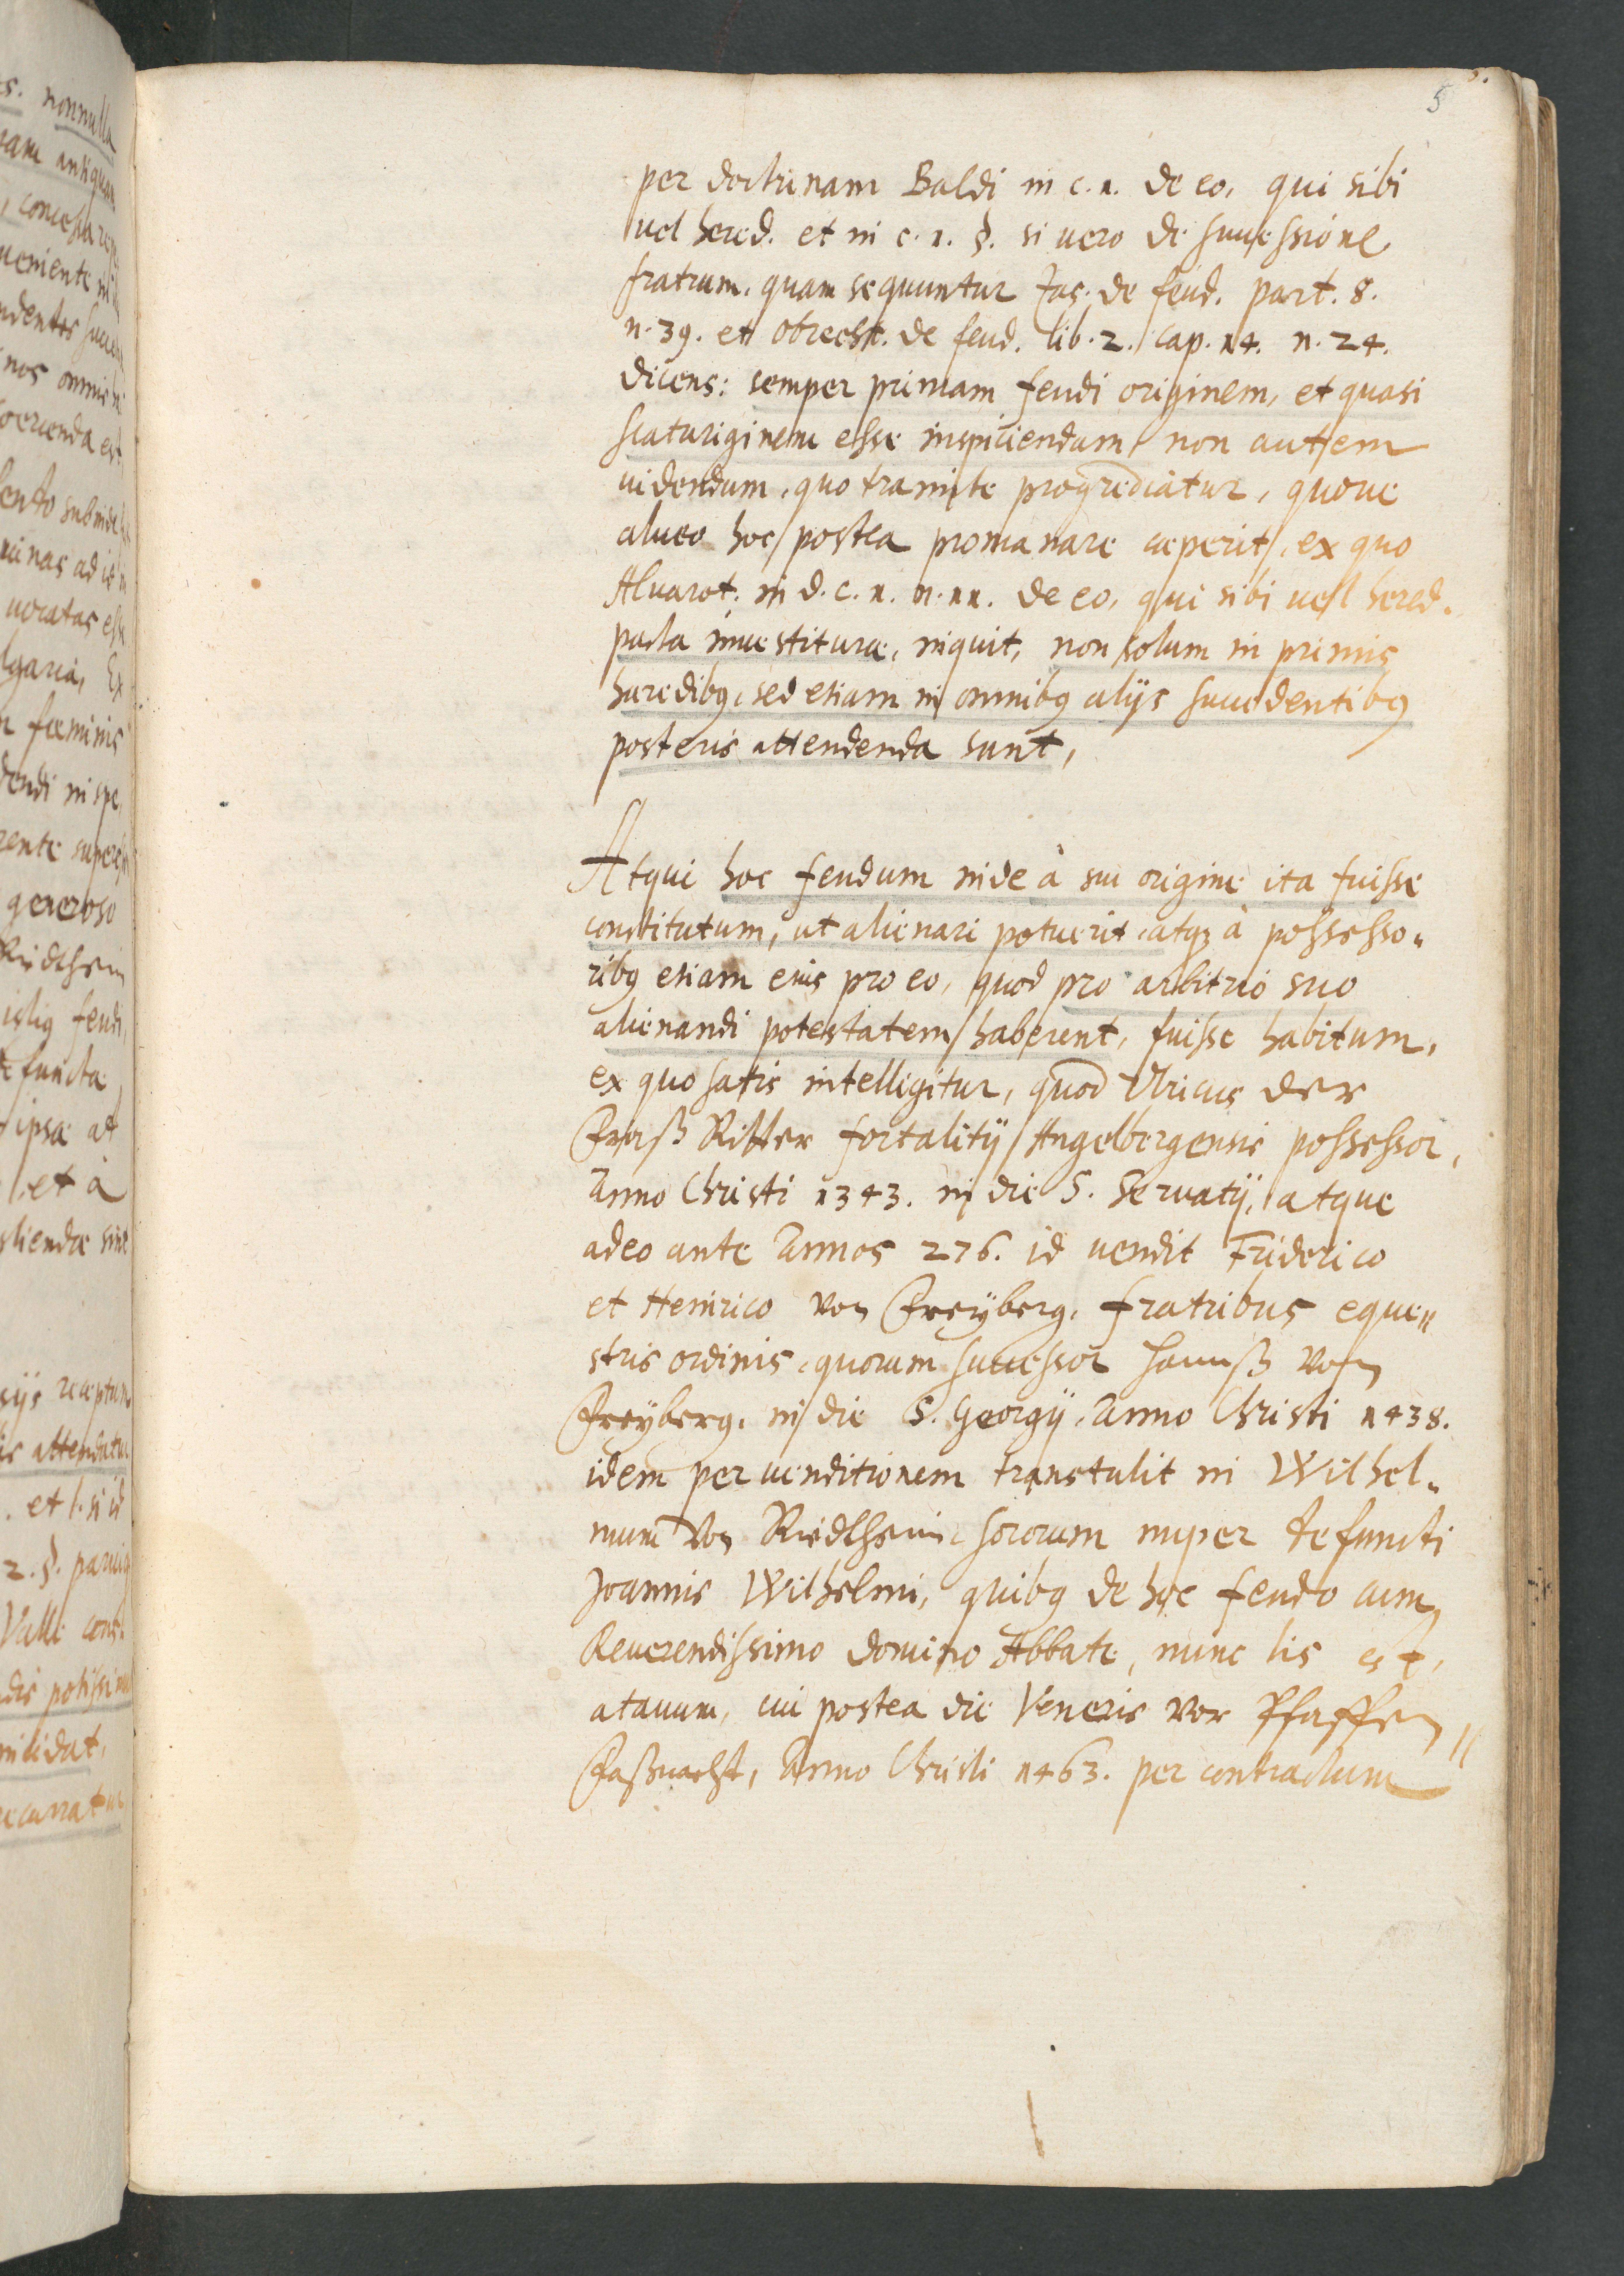 5
per doctrinam Baldi in c. 1. de eo, qui sibi
vel hered. et in c. 1. §. si uero de successione
fratrum. quam sequuntur Jas. de feud. part. 8.
n. 39. et obrecht. de feud. lib. 2. cap. 14. n. 24.
dicens: semper primam feudi originem, et quasi
scaturiginem esse inspiciendam, non autem
uidendum, quo tramite progrediatur, quoue
alueo hoc postea promanare ceperit, ex quo
Aluarot. in d. c. 1. n. 11. de eo, qui sibi uel hered.
pacta inuestiturae, inquit, non solum in primis
haredibq, sed etiam in omnibq alijs succedentibq
posteris attendenda sunt,
Atqui hoc feudum inde à sui origine ita fuisse
constitutum, ut alienari potuerit, atqz à possesso„
ribq etiam eius pro eo, quod pro arbitrio suo
alienandi potestatem haberent, fuisse habitum,
ex quo satis intelligitur, quod Vlricus der
Ritter fortalitij Angelbergensis possessor,
Anno Christi 1343. in die S. Seruatij, atque
adeo ante Annos 276. id uendit Friderico
et Heinrico von Freyberg, fratribus eque„
stris ordinis, quorum successor Hannß von
Freyberg, in die S. Georgij, Anno Christi 1438.
idem per uenditionem transtulit in Wilhel„
mum von Riedtheim, sororum nuper defuncti
Joannis Wilhelmi, quibq de hoc feudo cum
Reuerendissimo domino Abbate, nunc lis est,
atauum, cui postea die Veneris vor Pfaffen„
Faßnacht, Anno Christi 1463. per contractum